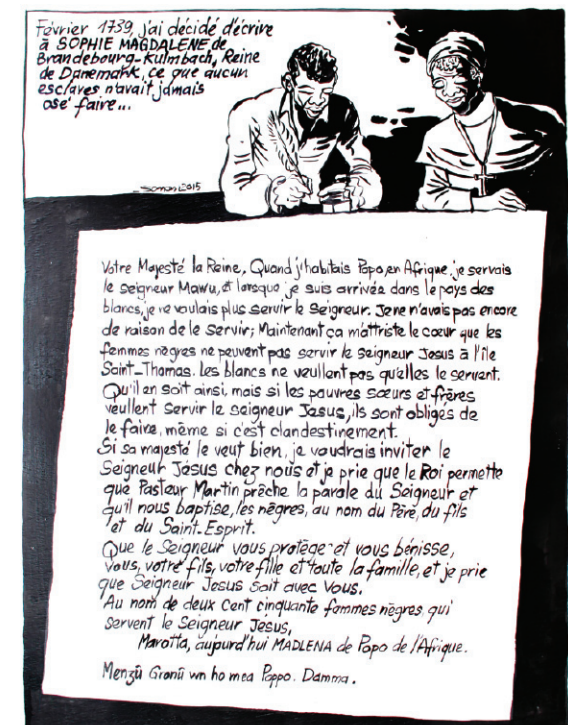 Février 1739, j'ai décidé d'écrire
à SOPHIE MAGDALENE de
Brandebourg-Kulmbach, Reine
de Danemark, ce que aucun
esclaves n'avait jamais
osé faire...
Votre Majesté la Reine, Quand j'habitais Popo en Afrique, je servais
le seigneur Mawu, et lorsque je suis arrivée dans le pays des
blancs, je ne voulais plus servir le Seigneur. Je ne n'avais pas encore
de raison de le servir; Maintenant ça m'attriste le cœur que les
femmes nègres ne peuvent pas servir le seigneur Jesus à l'île
Saint-Thomas. Les blancs ne veullent pas qu'elles le servent.
Qu'il en soit ainsi, mais si les pauvres sœurs et frères
veullent servir le seigneur Jesus, ils sont obligés de
le faire, même si c'est clandestinement.
Si sa majesté le veut bien, je voudrais inviter le
Seigneur Jésus chez nous et je prie que le Roi permette
que Pasteur Martin prêche la parole du Seigneur et
qu'il nous baptise, les nègres, au nom du Père, du fils
et du Saint-Esprit.
Que le Seigneur vous protège et vous bénisse,
vous, votre fils, votre fille et toute la famille, et je prie
que Seigneur Jesus soit avec Vous.
Au nom de deux cent cinquante femmes nègres qui
servent le Seigneur Jesus,
Marotta, aujourd'hui MADLENA de Popo de l'Afrique.
Menzü Gronü wn ho mea Poppo. Damma.